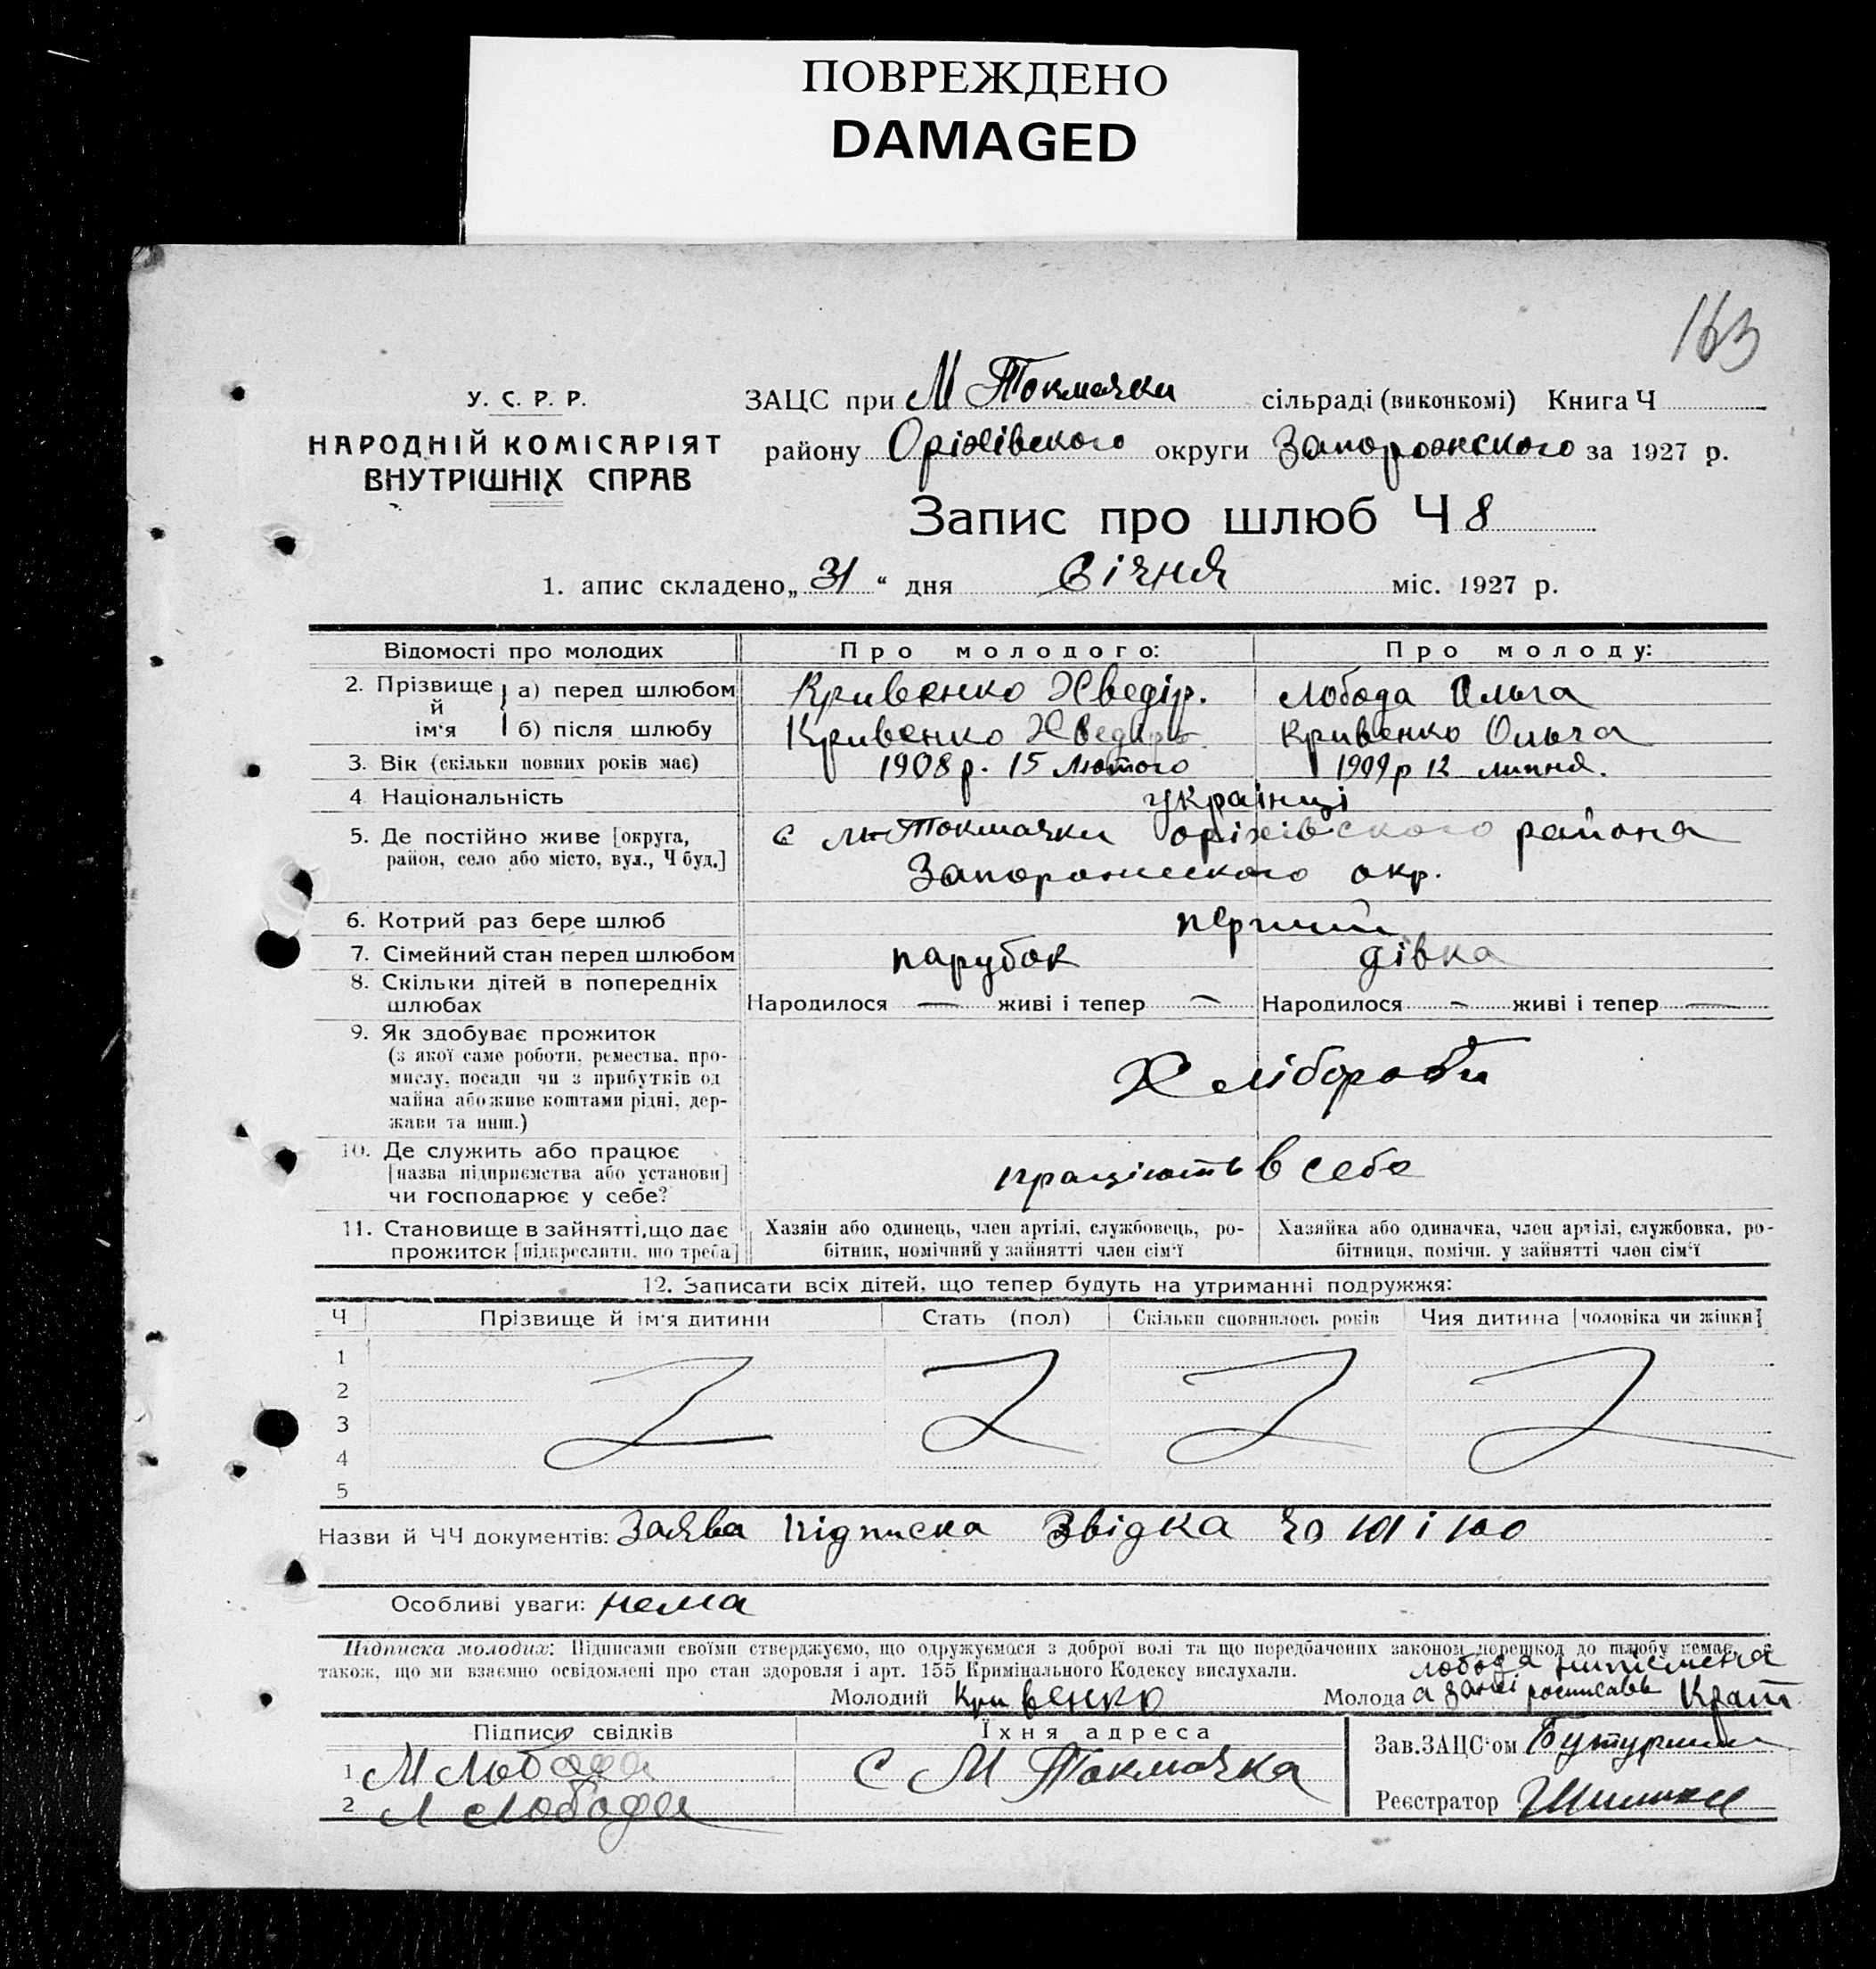 ПОВРЕЖДЕНО
DAMAGED
163
У. С. Р. Р.
НАРОДНІЙ КОМІСАРІЯТ
ВНУТРІШНІХ СПРАВ
ЗАЦС при М Токмачки сільраді (виконкомі) Книга Ч
району Оріхівського округи Запорожского за 1927 р.
Запис про шлюб Ч 8
1. апис складено „ 31 “ дня Січня міс. 1927 р.
Відомості про молодих Про молодого: Про молоду:
2. Прізвище й ім'я а) перед шлюбом Кривенко Хведір. Лобода Ольга
б) після шлюбу Кривенко Хведір Кривенко Ольга
3. Вік (скільки повних років має) 1908 р. 15 Лютого 1909 р 12 липня.
4 Національність українці
5. Де постійно живе [округа, район, село або місто, вул., Ч буд.] с М-Токмачки оріхівского района
Запорожского окр.
6. Котрий раз бере шлюб перший
7. Сімейний стан перед шлюбом парубок дівка
8. Скільки дітей в попередніх шлюбах Народилося — живі і тепер — Народилося — живі і тепер —
9. Як здобуває прожиток
(з якої саме роботи, ремества, про-
мислу, посади чи з прибутків од
майна або живе коштами рідні, дер-
жави та инш.) Хлібороби
10. Де служить або працює
[назва підприємства або установи]
чи господарює у себе? працюють в себе
11. Становище в зайнятті, що дає
прожиток [підкреслити, що треба]
Хазяін або одинець, член артілі, службовець, ро-
бітник, помічний у зайнятті член сім'ї
Хазяйка або одиначка, член артілі, службовка, ро-
бітниця, помічн. у зайнятті член сім'ї
12. Записати всіх дітей, що тепер будуть на утриманні подружжя:
Ч Прізвище й ім'я дитини Стать (пол) Скільки сповнилось років Чия дитина [чоловіка чи жінки]
1
2
3
4
5
Назви й ЧЧ документів: Заява підписка Звідка 101 і 100
Особливі уваги: нема
Підписка молодих: Підписами своїми стверджуємо, що одружуємося з доброї волі та що передбачених законом перешкод до шлюбу немає, а
також, що ми взаємно освідомлені про стан здоровля і арт. 155 Кримінального Кодексу вислухали.
Лобода
Молодий Кривенко Молода а росписавь Крат
Підписи свідків Їхня адреса Зав.ЗАЦС'ом
1 М Лобода С М Токмачка
2 Л Лобода Реєстратор